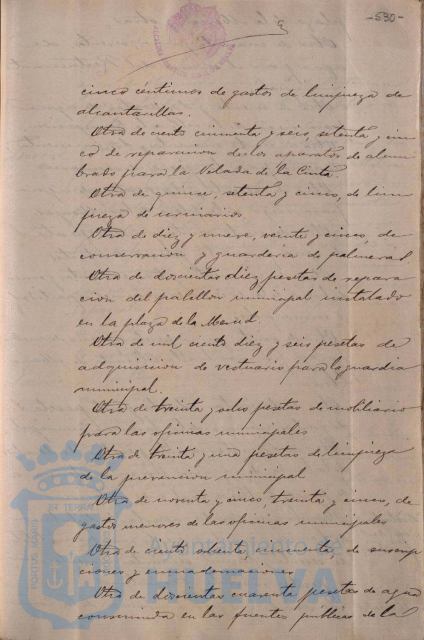 -530-
cinco céntimos de gastos de limpieza de
alcantarillas.
Otra de ciento cincuenta y seis, setenta y cin
co de reparacion de los aparatos de alum
brado para la Velada de la Cinta
Otra de quince, setenta y cinco, de lim
pieza de urinarios
Otra de diez y nueve, veinte y cinco, de
conservacion y guarderia de palmeras
Otra de doscientas diez pesetas de repara
cion del pabellon municipal instalado
en la plaza de la Merced.
Otra de mil ciento diez y seis pesetas de
adquisicion de vestuario para la guardia
municipal.
Otra de treinta y ocho pesetas de mobiliario
para las oficinas municipales
Otra de treinta y una pesetas de limpieza
de la prevencion municipal
Otra de noventa y cinco, treinta y cinco, de
gastos menores de las oficinas municipales
Otra de ciento ochenta, cincuenta, de suscrip
ciones y encuadernaciones
Otra de doscientas cuarenta pesetas de agua
consumida en las fuentes publicas de la
Ayuntamiento de
HUELVA